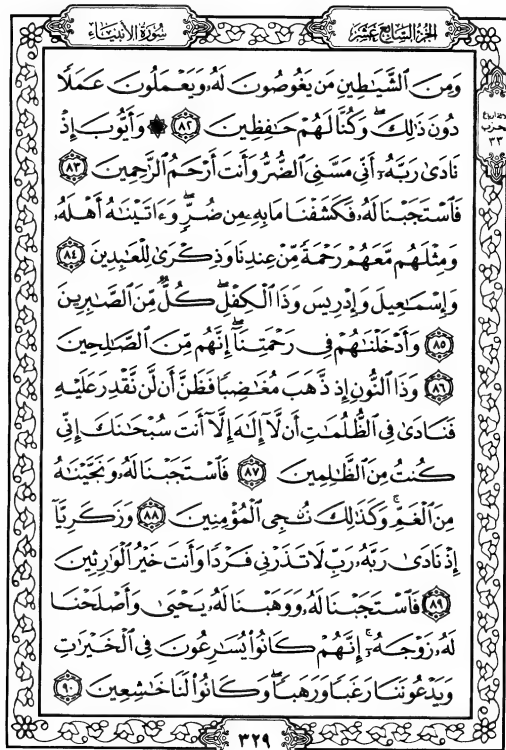 سُورَةُ الأَنبِيَاءِ
الجُزءُ السَّابِعَ عَشَرَ
وَمِنَ ٱلشَّيَٰطِينِ مَن يَغُوصُونَ لَهُۥ وَيَعْمَلُونَ عَمَلًا
دُونَ ذَٰلِكَۖ وَكُنَّا لَهُمْ حَٰفِظِينَ ٨٢ ۞ وَأَيُّوبَ إِذْ
نَادَىٰ رَبَّهُۥٓ أَنِّي مَسَّنِيَ ٱلضُّرُّ وَأَنتَ أَرْحَمُ ٱلرَّٰحِمِينَ ٨٣
فَٱسْتَجَبْنَا لَهُۥ فَكَشَفْنَا مَا بِهِۦ مِن ضُرٍّۖ وَءَاتَيْنَٰهُ أَهْلَهُۥ
وَمِثْلَهُم مَّعَهُمْ رَحْمَةً مِّنْ عِندِنَا وَذِكْرَىٰ لِلْعَٰبِدِينَ ٨٤
وَإِسْمَٰعِيلَ وَإِدْرِيسَ وَذَا ٱلْكِفْلِۖ كُلٌّ مِّنَ ٱلصَّٰبِرِينَ
٨٥ وَأَدْخَلْنَٰهُمْ فِي رَحْمَتِنَآۖ إِنَّهُم مِّنَ ٱلصَّٰلِحِينَ
٨٦ وَذَا ٱلنُّونِ إِذ ذَّهَبَ مُغَٰضِبًا فَظَنَّ أَن لَّن نَّقْدِرَ عَلَيْهِ
فَنَادَىٰ فِي ٱلظُّلُمَٰتِ أَن لَّآ إِلَٰهَ إِلَّآ أَنتَ سُبْحَٰنَكَ إِنِّي
كُنتُ مِنَ ٱلظَّٰلِمِينَ ٨٧ فَٱسْتَجَبْنَا لَهُۥ وَنَجَّيْنَٰهُ
مِنَ ٱلْغَمِّۚ وَكَذَٰلِكَ نُۨجِي ٱلْمُؤْمِنِينَ ٨٨ وَزَكَرِيَّآ
إِذْ نَادَىٰ رَبَّهُۥ رَبِّ لَا تَذَرْنِي فَرْدًا وَأَنتَ خَيْرُ ٱلْوَٰرِثِينَ
٨٩ فَٱسْتَجَبْنَا لَهُۥ وَوَهَبْنَا لَهُۥ يَحْيَىٰ وَأَصْلَحْنَا
لَهُۥ زَوْجَهُۥٓۚ إِنَّهُمْ كَانُوا۟ يُسَٰرِعُونَ فِي ٱلْخَيْرَٰتِ
وَيَدْعُونَنَا رَغَبًا وَرَهَبًاۖ وَكَانُوا۟ لَنَا خَٰشِعِينَ ٩٠
حزب
٣٣
٣٢٩